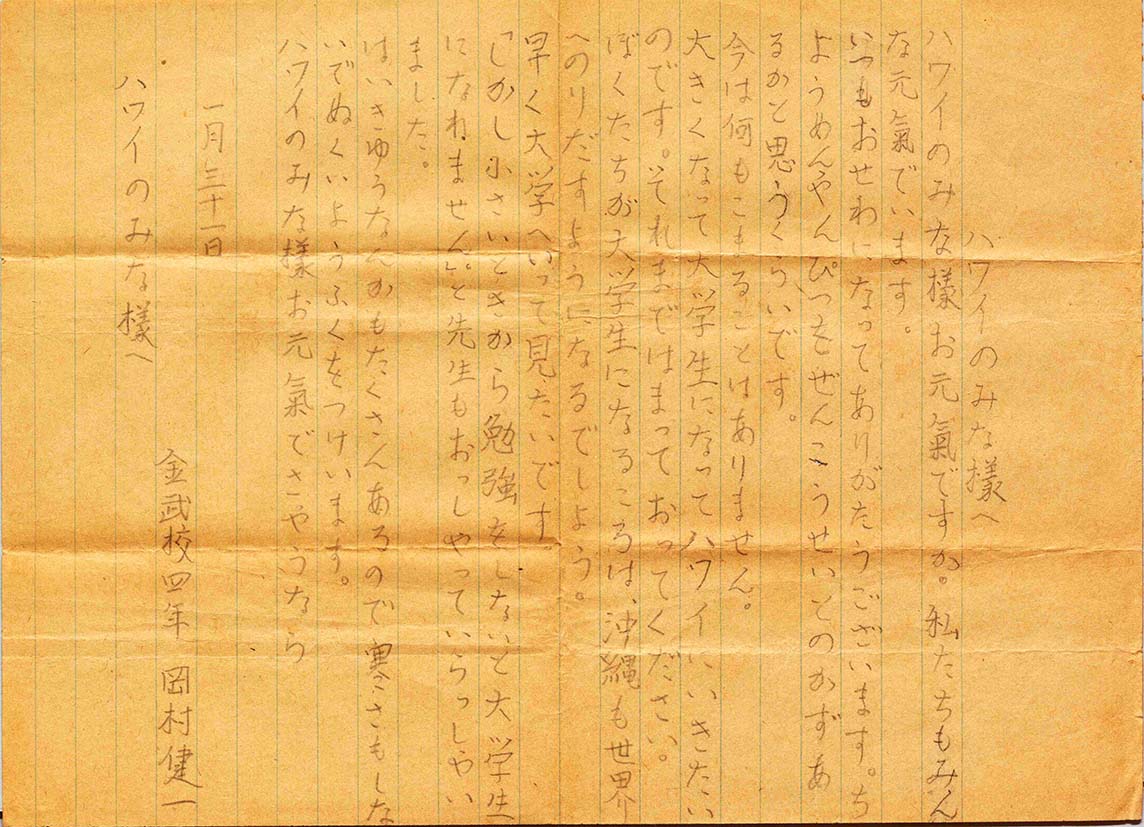 ハワイのみな様へ
ハワイのみな様お元氣ですか。私たちもみん
な元氣でいます。
いつもおせわになってありがたうございます。ち
ようめんやんぴつをぜんこうせいとのかずあ
るかと思うくらいです。
今は何もこまることはありません。
大きくなって大学生になってハワイにいきたい
のです。それまではまっておってください。
ぼくたちが大学生になるころは、沖縄も世界
へのりだすようになるでしよう。
早く大学へいって見たいです
「しかし小さいときから勉強をしないと大学生
になれません。」と先生もおっしやっていらっしやい
ました。
はいきゆうなんかもたくさんあるので寒さもしな
いでぬくいようふくをつけいます。
ハワイのみな様お元氣でさやうなら
一月三十一日
金武校四年 岡村健一
ハワイのみな様へ